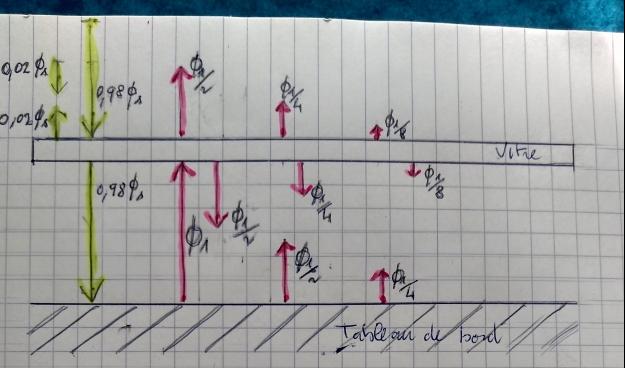 0,02ϕs
0,02ϕs
0,98ϕs
ϕ1/2
ϕ1/4
ϕ1/8
Vitre
0,98ϕs
ϕ1
ϕ1/2
ϕ1/4
ϕ1/8
ϕ1/2
ϕ1/4
Tableau de bord